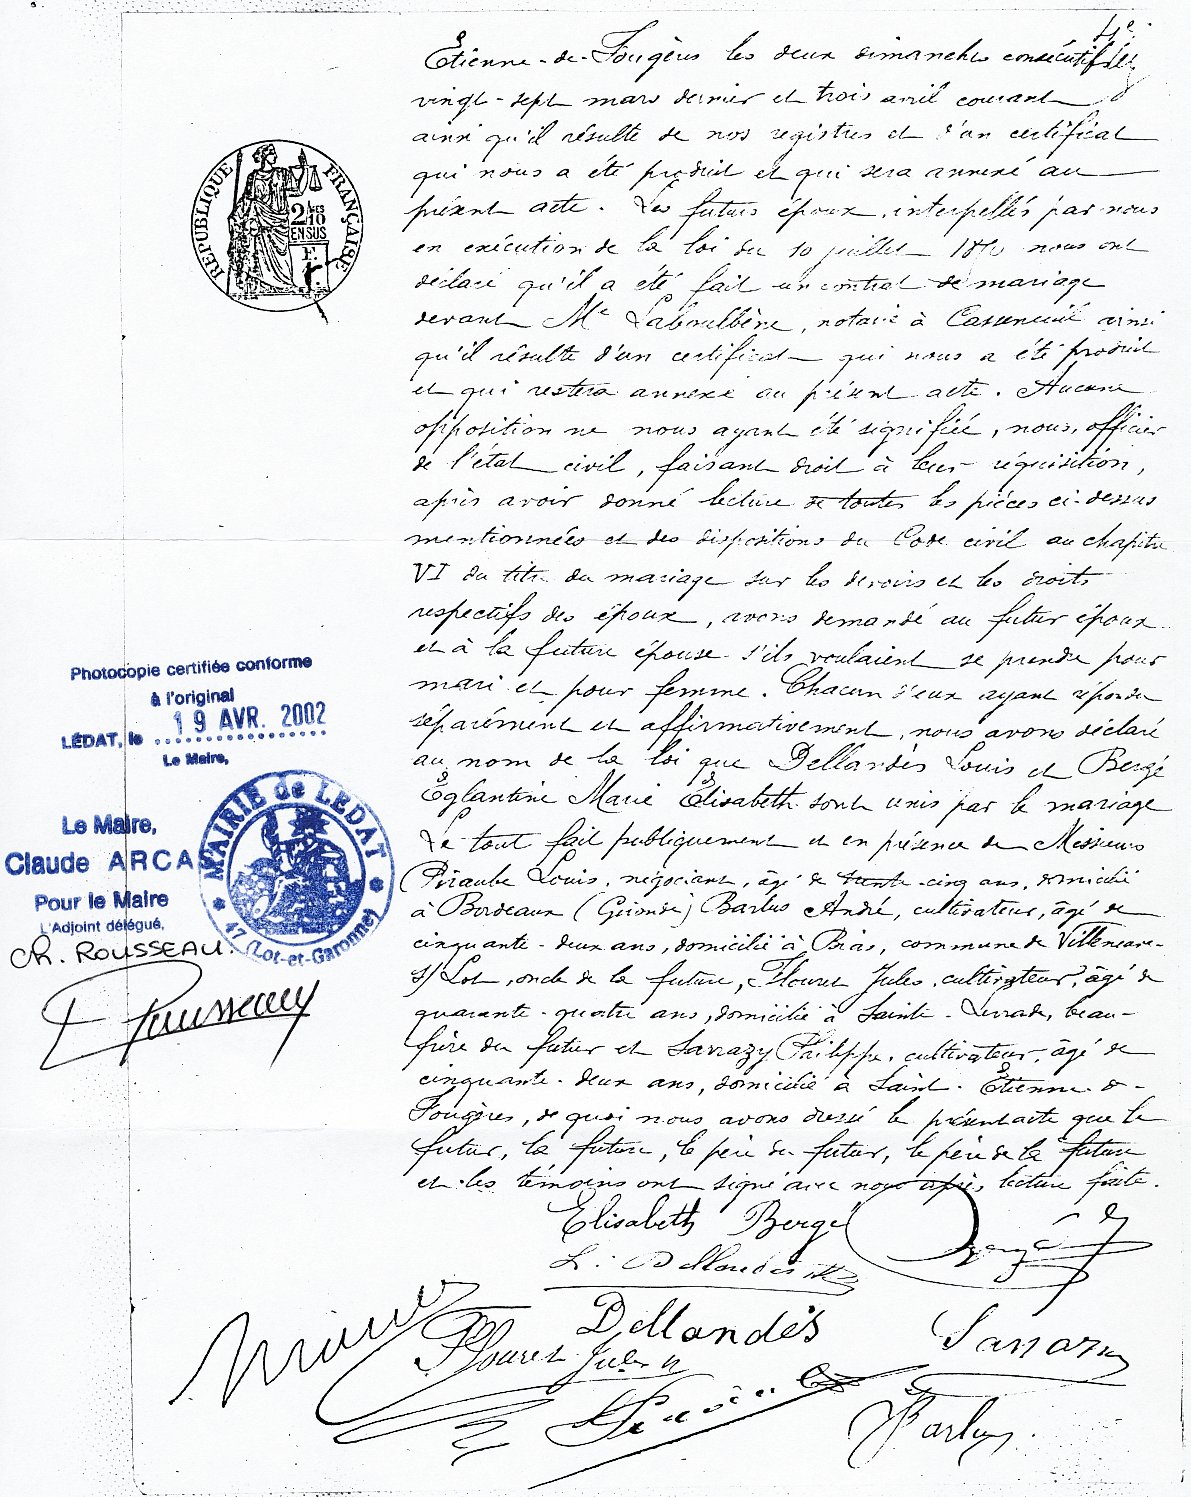 4e
Étienne-de-Fougères les deux dimanches consécutifs
vingt-sept mars dernier et trois avril courant
ainsi qu'il résulte de nos registres et d'un certificat
qui nous a été produit et qui sera annexé au
présent acte. Les futurs époux, interpellés par nous
en exécution de la loi du 10 juillet 1850 nous ont
déclaré qu'il a été fait un contrat de mariage
devant Me Laboulbène, notaire à Casseneuil ainsi
qu'il résulte d'un certificat qui nous a été produit
et qui restera annexé au présent acte. Aucune
opposition ne nous ayant été signifiée, nous, officier
de l'état civil, faisant droit à leur réquisition,
après avoir donné lecture de toutes les pièces ci-dessus
mentionnées et des dispositions du Code civil au chapitre
VI du titre du mariage sur les devoirs et les droits
respectifs des époux, avons demandé au futur époux
et à la future épouse s'ils voulaient se prendre pour
mari et pour femme. Chacun d'eux ayant répondu
séparément et affirmativement, nous avons déclaré
au nom de la loi que Dellandès Louis et Bergé
Églantine Marie Élisabeth sont unis par le mariage
Le tout fait publiquement et en présence de Messieurs
Louis, négociant, âgé de trente-cinq ans, domicilié
à Bordeaux (Gironde) Barlus André, cultivateur, âgé de
cinquante-deux ans, domicilié à Bias, commune de Villeneuve-
s/ Lot, oncle de la future, Flouret Jules, cultivateur, âgé de
quarante-quatre ans, domicilié à Sainte-Livrade, beau-
frère du futur et Sarrazy Philippe, cultivateur, âgé de
cinquante-deux ans, domicilié à Saint-Étienne-de-
Fougères, de quoi nous avons dressé le présent acte que le
futur, la future, le père du futur, le père de la future
et les témoins ont signé avec nous après lecture faite.
Elisabeth Bergé
Bergé
L. Dellandès
Dellandès
Flouret Jules
Sarrazy
Barlus
RÉPUBLIQUE FRANÇAISE
2/10
EN SUS
Photocopie certifiée conforme
à l'original
LÉDAT, le 19 AVR. 2002
Le Maire,
Le Maire,
Claude ARCA
Pour le Maire
L'Adjoint délégué,
Ch. ROUSSEAU.
Rousseau
MAIRIE de LEDAT
47 (Lot-et-Garonne)